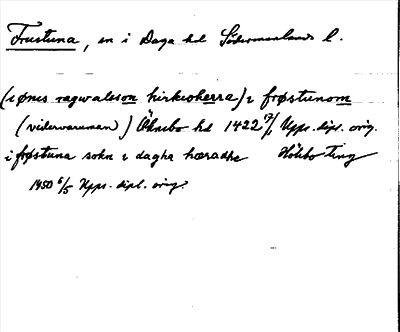 Frustuna, sn i Daga hd Södermanlands l.
(iønis ragwalsson kirkioherra) i frøstunom
(vidervaruman) Åkerbo hd 1422 17/1 Upps. dipl. orig.
i frøstuna sokn i dagha hæradhe Hölebo Ting
1450 6/5 Upps. dipl. orig.